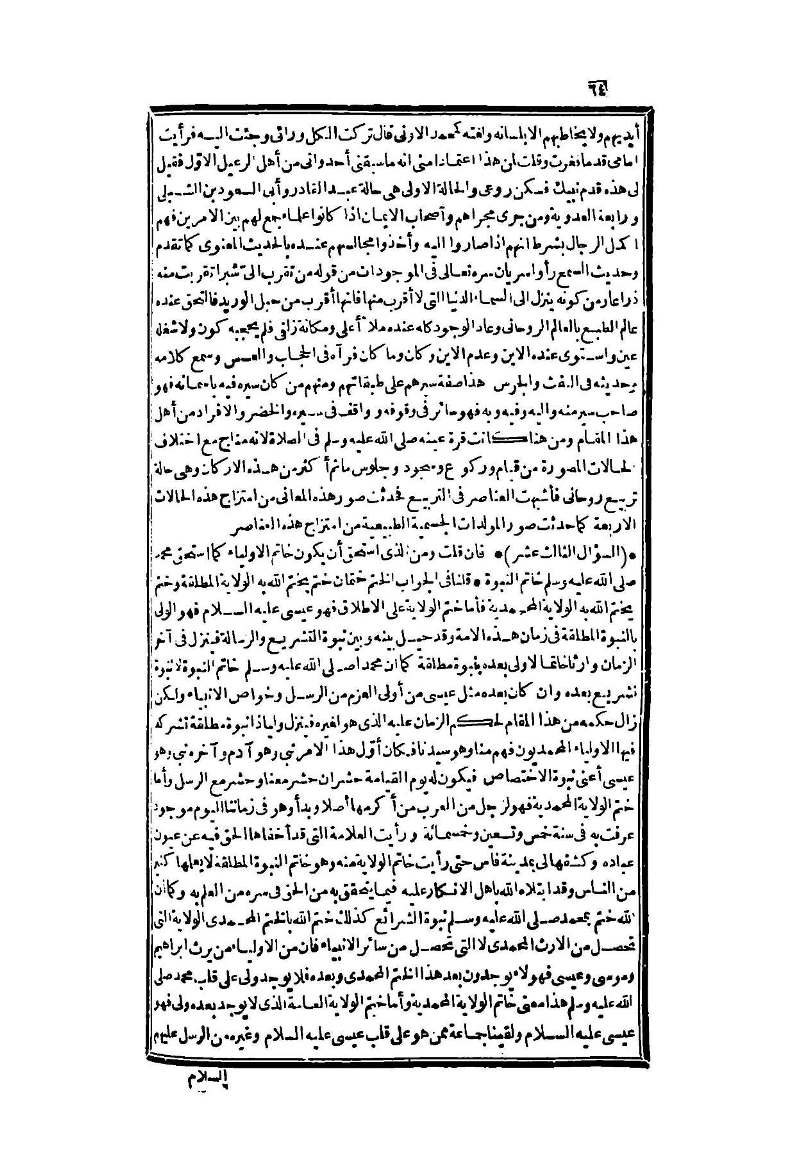 ٦٤
أيديهم ولا يخاطبهم الا بلسانه ولغته كمحمد الاوني قال تركت الكل ورائي وجئت اليه فرأيت
امامي قدما فغرت وقلت لمن هذا اعتمادا مني انه ما سبقني أحد واني من أهل الرعيل الاول فقيل
لي هذه قدم نبيك فسكن روعي والحالة الاولى هي حالة عبد القادر وأبي السعود بن الشبلي
ورابعة العدوية ومن جرى مجراهم وأصحاب الايمان اذا كانوا علماء جمع لهم بين الامرين فهم
أكمل الرجال بشرط انهم اذا صاروا اليه وأخذوا مجالسهم عنده بالحديث المعنوي كما تقدم
وحديث السمع رأوا سريان سره تعالى في الموجودات من قوله من تقرب الى شبرا تقربت منه
ذراعا ومن كونه ينزل الى السماء الدنيا التي لا أقرب منها فانها أقرب من حبل الوريد فالتحق عنده
عالم الطبع بالعالم الروحاني وعاد الوجود كله عنده ملأ أعلى ومكانة زلفى فلم يحجبه كون ولا شغله
عين واستوى عنده الاين وعدم الاين وكان وما كان فرآه في الحجاب والعسس وسمع كلامه
وحديثه في النفث والجرس هذا صفة سيرهم على طبقاتهم ومنهم من كان سيره فيه باسمائه فهو
صاحب سير منه واليه وفيه وبه فهو سائر في وقوفه وواقف في سيره والخضر والافراد من أهل
هذا المقام ومن هنا كانت قرة عينه صلى الله عليه وسلم في الصلاة لانه مناج مع اختلاف
الحالات المصورة من قيام وركوع وسجود وجلوس ما ثم أكثر من هذه الاركان وهي حالة
تربيع روحاني فأشبهت العناصر في التربيع فحدثت صور هذه المعاني من امتزاج هذه الحالات
الاربعة كما حدثت صور المولدات الجسمية الطبيعية من امتزاج هذه العناصر
* (السؤال الثالث عشر) * فان قلت ومن الذي استحق أن يكون خاتم الاولياء كما استحق محمد
صلى الله عليه وسلم خاتم النبوة * قلنا في الجواب الختم ختمان ختم يختم الله به الولاية المطلقة وختم
يختم الله به الولاية المحمدية فأما ختم الولاية على الاطلاق فهو عيسى عليه السلام فهو الولي
بالنبوة المطلقة في زمان هذه الامة وقد حيل بينه وبين نبوة التشريع والرسالة فينزل في آخر
الزمان وارثا خاتما لا ولي بعده بنبوة مطلقة كما ان محمدا صلى الله عليه وسلم خاتم النبوة لا نبوة
تشريع بعده وان كان بعده مثل عيسى من أولي العزم من الرسل وخواص الانبياء ولكن
زال حكمه من هذا المقام لحكم الزمان عليه الذي هو لغيره فينزل وليا ذا نبوة مطلقة تشركه
فيها الاولياء المحمديون فهم منا وهو سيدنا فكان أول هذا الامر نبي وهو آدم وآخره نبي وهو
عيسى أعني نبوة الاختصاص فيكون له يوم القيامة حشران حشر معنا وحشر مع الرسل وأما
ختم الولاية المحمدية فهو لرجل من العرب من أكرمها أصلا ويدا وهو في زماننا اليوم موجود
عرفت به في سنة خمس وتسعين وخمسمائة ورأيت العلامة التي قد أخفاها الحق فيه عن عيون
عباده وكشفها لي بمدينة فاس حتى رأيت خاتم الولاية منه وهو خاتم النبوة المطلقة لا يعلمها كثير
من الناس وقد ابتلاه الله باهل الانكار عليه فيما يتحقق به من الحق في سره من العلم به وكما ان
الله ختم بمحمد صلى الله عليه وسلم نبوة الشرائع كذلك ختم الله بالختم المحمدي الولاية التي
تحصل من الارث المحمدي لا التي تحصل من سائر الانبياء فان من الاولياء من يرث ابراهيم
وموسى وعيسى فهؤلاء يوجدون بعد هذا الختم المحمدي وبعده فلا يوجد ولي على قلب محمد صلى
الله عليه وسلم هذا معنى خاتم الولاية المحمدية وأما ختم الولاية العامة الذي لا يوجد بعده ولي فهو
عيسى عليه السلام ولقينا جماعة ممن هو على قلب عيسى عليه السلام وغيره من الرسل عليهم
السلام